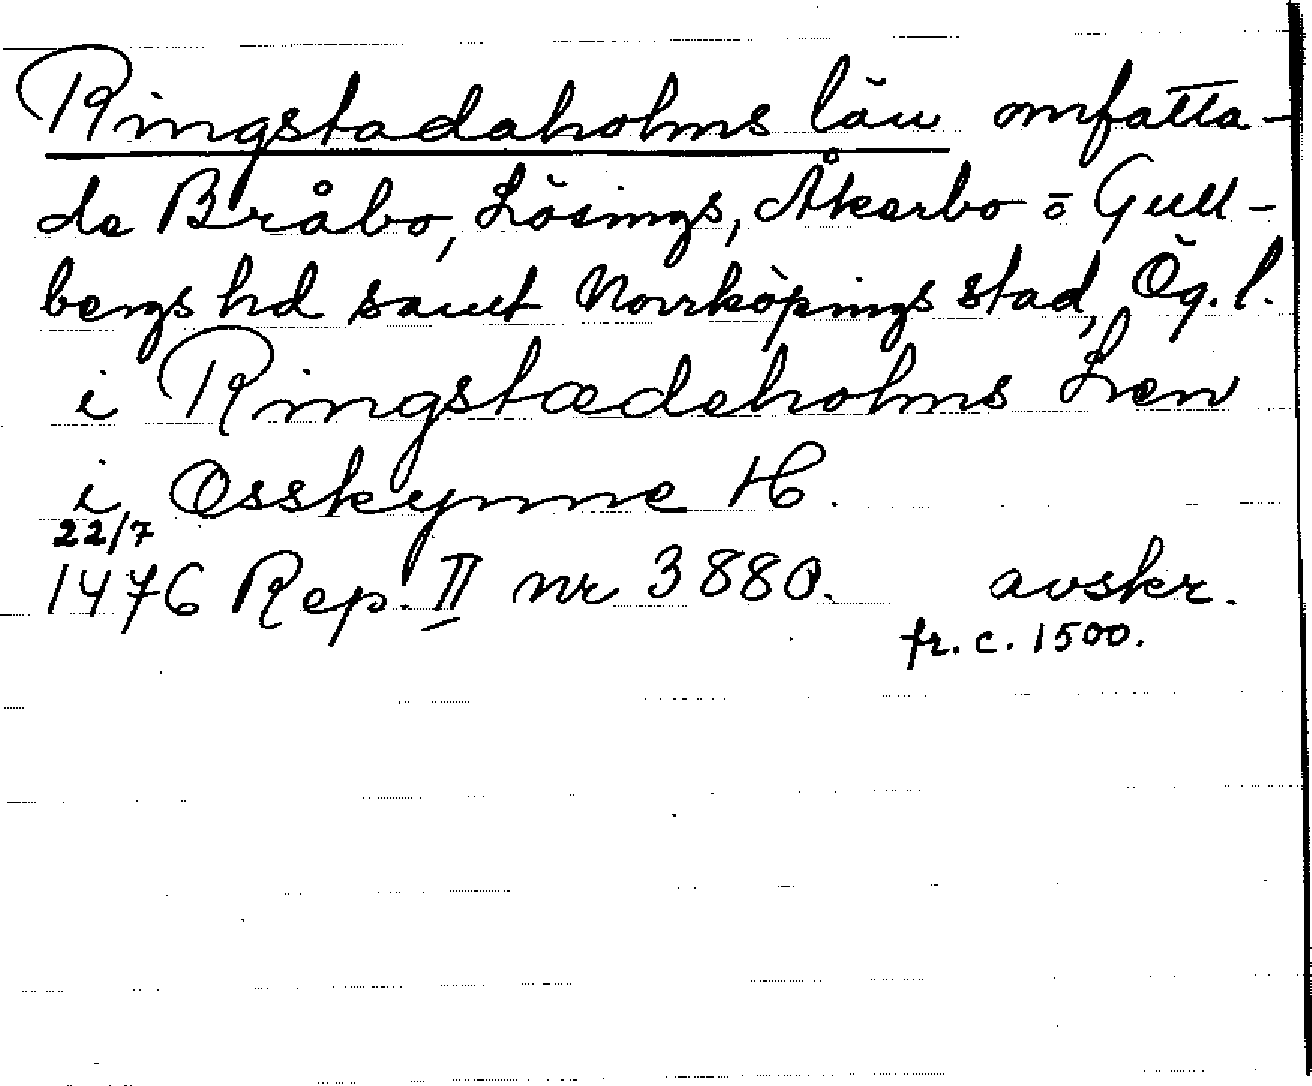 Ringstadaholms län omfatta-
de Bråbo, Lösings, Åkerbo o Gull-
bergs hd samt Norrköpings stad, Ög. l.
i Ringstædeholms Læn
i Osskynne H.
22/7
1476 Rep. II nr 3880. avskr.
fr. c. 1500.